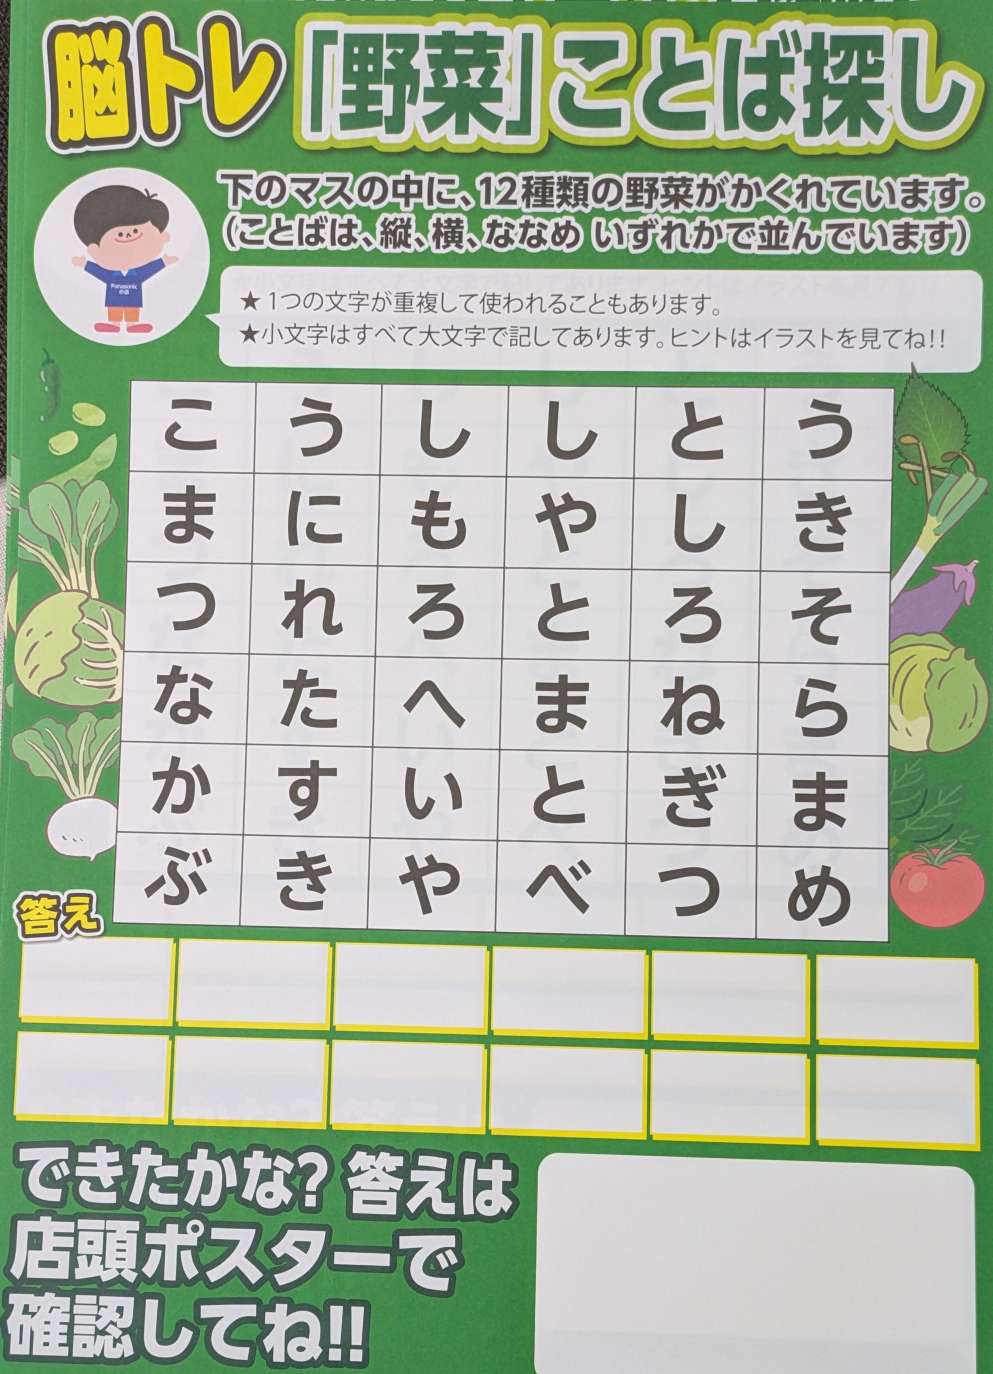 脳トレ「野菜」ことば探し
下のマスの中に、12種類の野菜がかくれています。
(ことばは、縦、横、ななめ いずれかで並んでいます)
★1つの文字が重複して使われることもあります。
★小文字はすべて大文字で記してあります。ヒントはイラストを見てね!!
Panasonic
こ う し し と う
ま に も や し き
つ れ ろ と ろ そ
な た へ ま ね ら
か す い と ぎ ま
ぶ き や べ つ め
答え
できたかな? 答えは
店頭ポスターで
確認してね!!